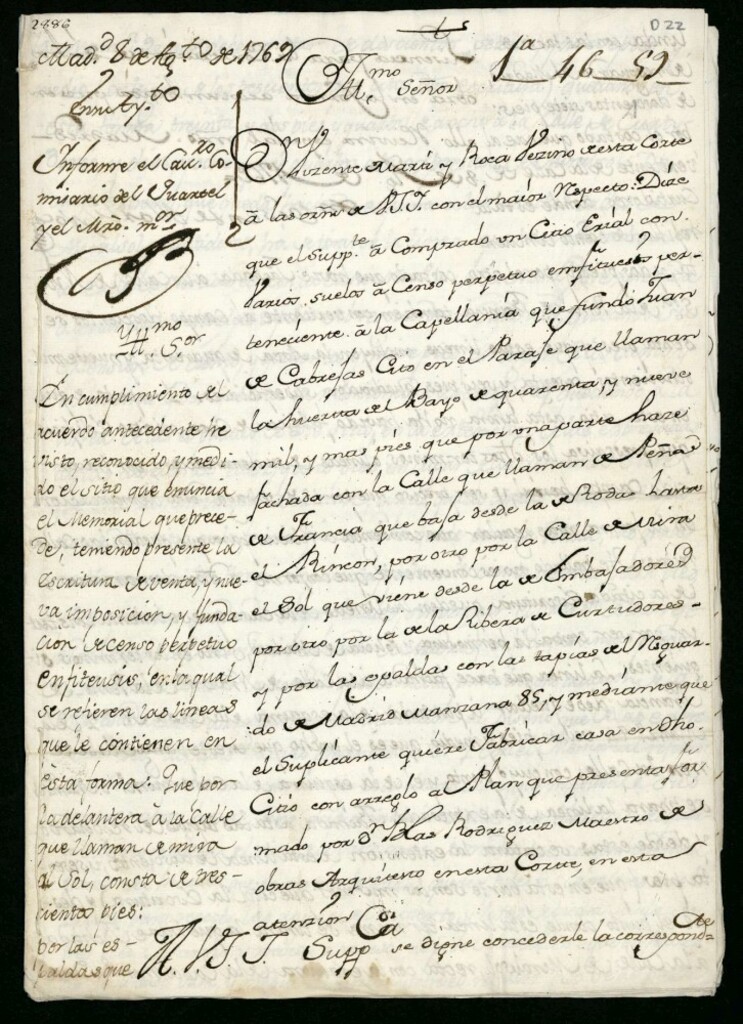 2886
D 22
1ª 46 52
Mad.d 8 de Ag.to de 1769
En Ay.to
Informe el Cav.ro Co-
misario del Quartel
y el Mro. m.or
Y Ill.mo S.or
En cumplimiento del
acuerdo antecedente he
visto, reconocido, y medi-
do el sitio que enuncia
el Memorial que prece-
de, teniendo presente la
escritura de venta, y nue-
va imposicion, y funda-
cion de censo perpetuo
enfiteusis, en la qual
se refieren las lineas
que le contienen en
esta forma: Que por
la delantera à la Calle
que llaman de mira
al Sol, consta de tres-
cientos pies:
por las es-
paldas que
Ill.mo Señor
Dn Vizente Martí y Roca Vezino de esta Corte
â las orns de V.S.I. con el maior Respecto: Dize
que el Supp.te â Comprado vn Citio Erial con
varios suelos â Censo perpetuo emfiteusis per-
teneciente â la Capellania que fundó Juan
de Cabrejas Cito en el Paraje que llaman
la huerta del Bayo de quarenta, y nueve
mil, y mas piès que por vna parte haze
fachada con la Calle que llaman de Peña
de Francia que baja desde la de Rodas hasta
el Rincon, por otro por la Calle de Mira
el Sol que viene desde la de Embajadores
por otro por la de la Ribera de Curtidores-
y por las espaldas con las tapias del Resguar-
do de Madrid Manzana 85, y mediante que
el Suplicante quiere Fabricar casa en dho.
Citio con arreglo a Plan que presenta for
mado por Dn Blas Rodriguez Maestro de
obras Arquitecto en esta Corte, en esta
atenzion
A V.S.I. Supp.ca se digne concederle la correspond.te